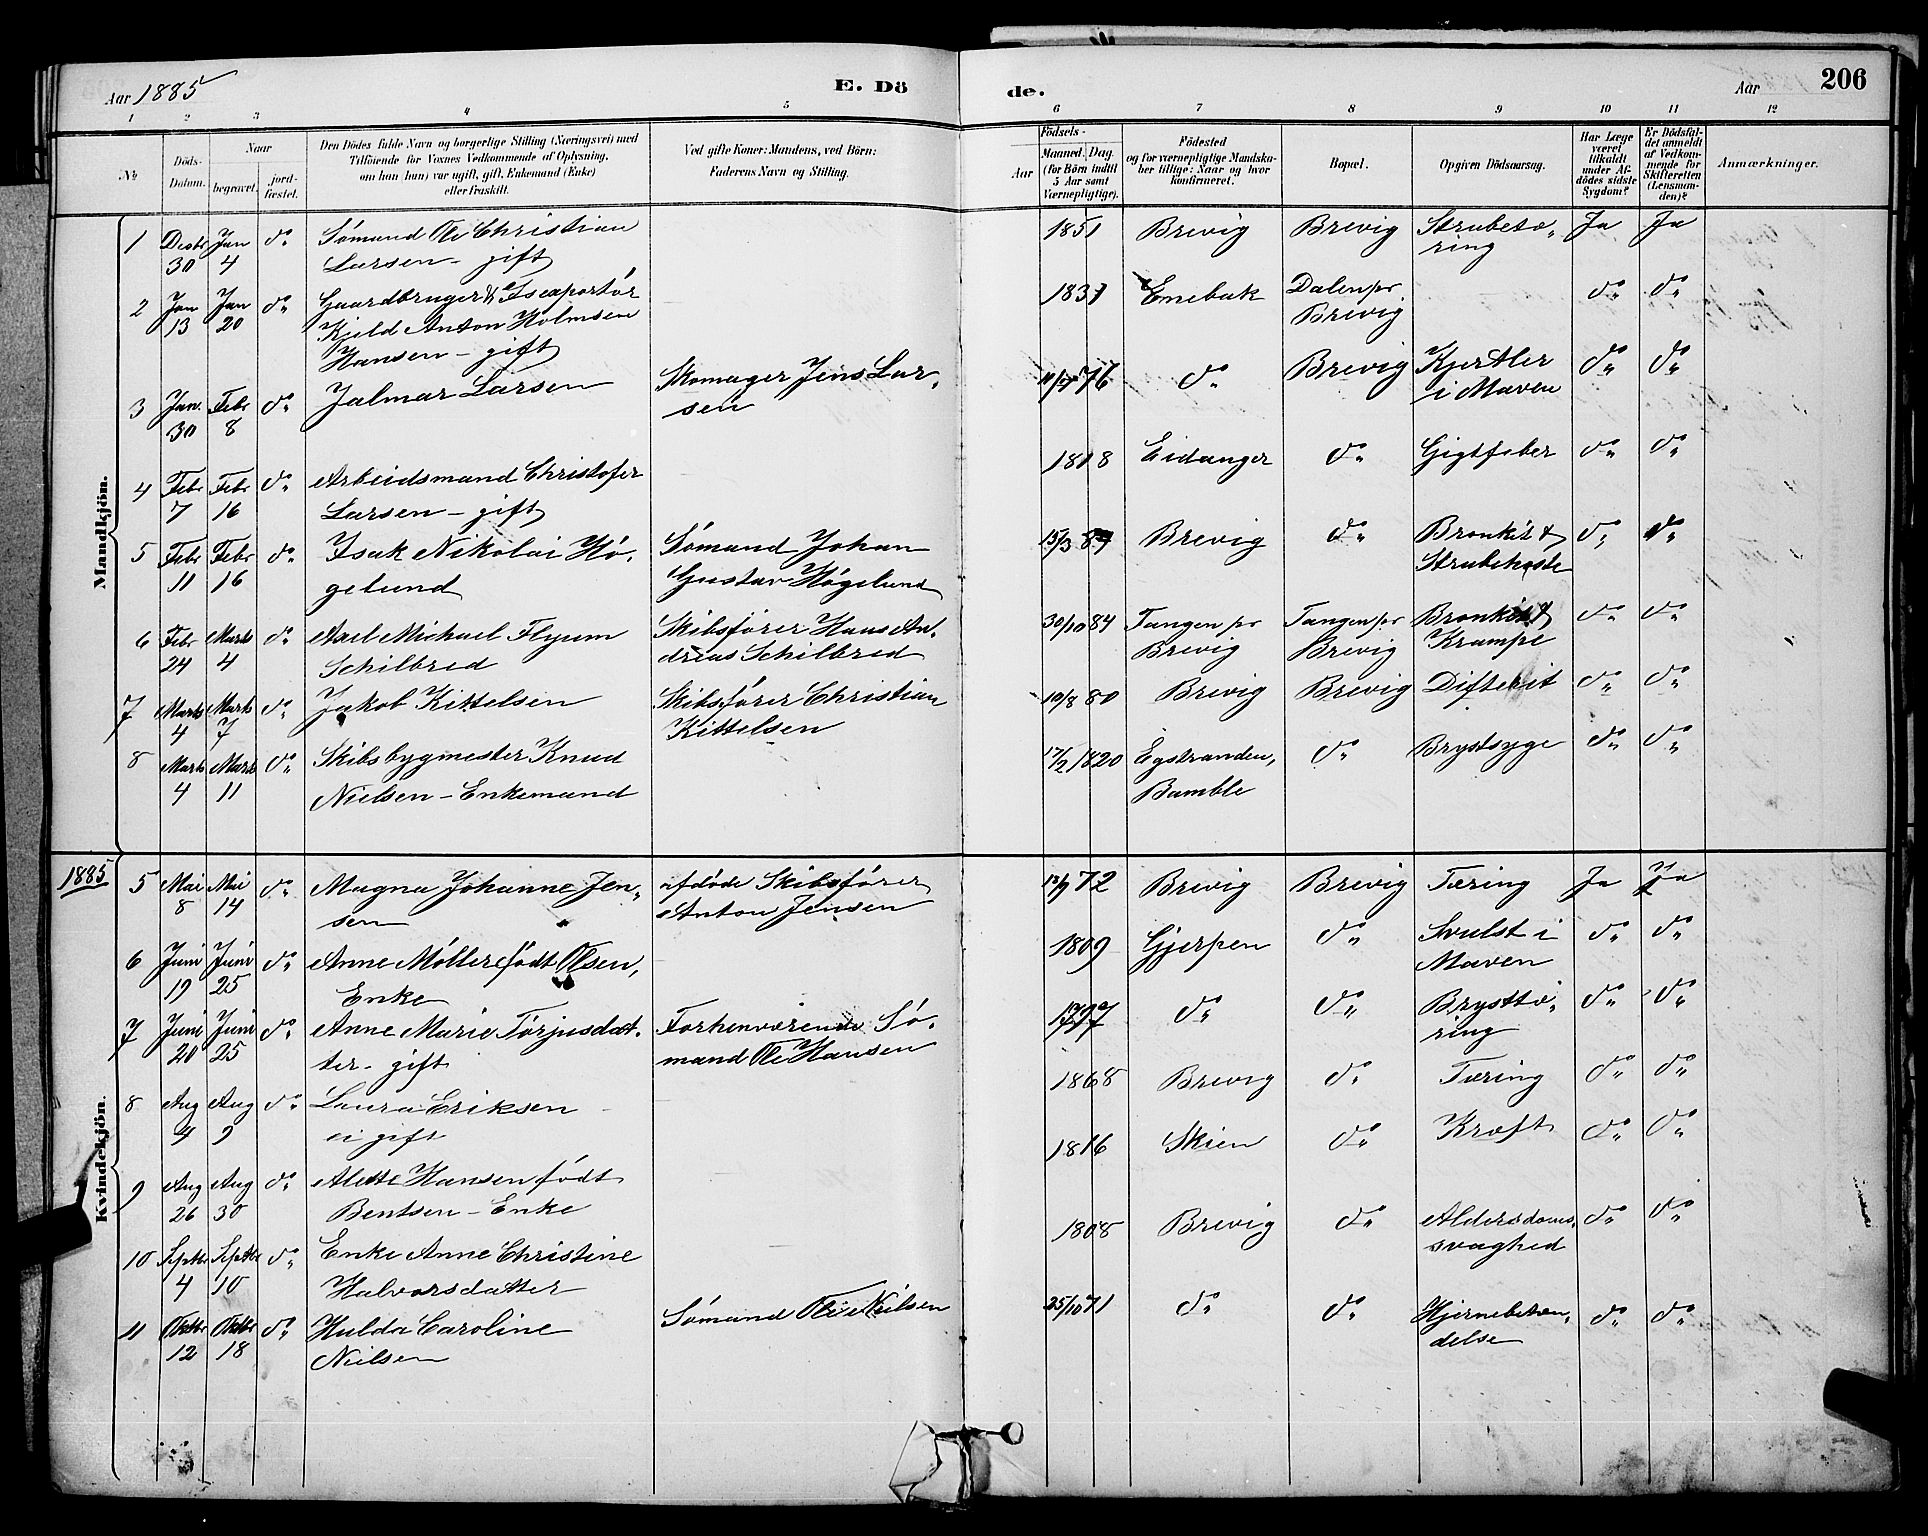 Aar 1885
E. Dö
de.
Aar
206
1 2 3 4 5 6 7 8 9 10 11 12
No
Döds-
Datum.
Naar
begravet.
jord-
fæstet.
Den Dödes fulde Navn og borgerlige Stilling (Næringsvei) med
Tilföiende for Voxnes Vedkommende af Oplysning,
om han (hun) var ugift, gift, Enkemand (Enke)
eller fraskilt.
Ved gifte Koner: Mandens, ved Börn:
Faderens Navn og Stilling.
Födsels-
Aar
Maaned. Dag.
(for Börn indtil
5 Aar samt
Værnepligtige).
Födested
og for værnepligtige Mandska-
ber tillige: Naar og hvor
konfirmeret.
Bopæl.
Opgiven Dödsaarsag.
Har Læge
været
tilkaldt
under Af-
dödes sidste
Sygdom?
Er Dödsfal-
det anmeldt
af Vedkom-
mende for
Skifteretten
(Lensman-
den)?
Anmærkninger.
Mandkjön.
1 Decbr Jan do Sömand Ole Christian 1851 Brevig Brevig Strubetæ- Ja Ja
30 4 Larsen - gift ring
2 Jan Jan do Gaardbruger & Isexportör 1831 Enebak Dalen pr do do
13 20 Kield Anton Holmsen Brevig
Hansen - gift
3 Jan. Febr do Jalmar Larsen Skomager Jens Lar- 76 do Brevig Kjertler do do
30 8 sen i Maven
4 Febr Febr do Arbeidsmand Christofer 1818 Eidanger do Gigtfeber do do
7 16 Larsen - gift
5 Febr Febr do Isak Nikolai Hö- Sömand Johan 15/3 84 Brevig do Bronkit & do do
11 16 gelund Gustav Högelund Strubehoste
6 Febr Marts do Axel Michael Flyum Skibsförer Hans An- 30/10 84 Tangen pr Tangen pr Bronkit & do do
24 4 Schilbred dreas Schilbred Brevig Brevig Krampe
7 Marts Marts do Jakob Kittelsen Skibsförer Christian 10/8 80 Brevig Brevig Difterit do do
4 7 Kittelsen
8 Marts Marts do Skibsbygmester Knud 17/2 1820 Egstranden, do Brystsyge do do
4 11 Nielsen - Enkemand Bamble
1885
Kvindekjön.
5 Mai Mai do Magna Johanne Jen- afdöde Skibsförer 72 Brevig Brevig Tæring Ja Ja
8 14 sen Anton Jensen
6 Juni Juni do Anne Möller födt Olsen, 1809 Gjerpen do Svulst i do do
19 25 Enke Maven
7 Juni Juni do Anne Marie Törjusdat- Forhenværende Sö- 1797 do do Brysttæ- do do
20 25 ter - gift mand Ole Hansen ring
8 Aug Aug do Laura Eriksen 1868 Brevig do Tæring do do
4 9 ei gift
9 Aug Aug do Alette Hansen födt 1816 Skien do Kræft do do
26 30 Bentsen - Enke
10 Septbr Septbr do Enke Anne Christine 1808 Brevig do Alderdoms- do do
4 10 Halvorsdatter svaghed
11 Oktbr Oktbr do Hulda Caroline Sömand Ole Nielsen 25/10 71 do do Hjernebetæn- do do
12 18 Nielsen delse